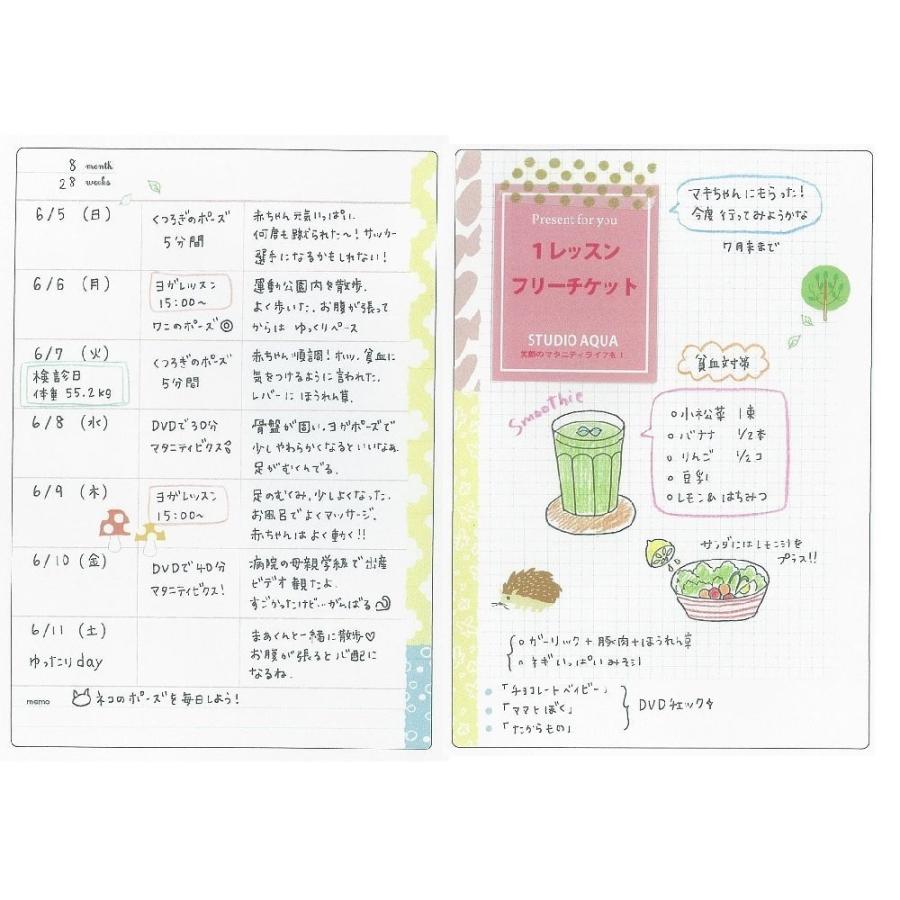 8 month
28 weeks
6/5 (日)
くつろぎのポーズ
5分間
赤ちゃん元気いっぱい。
何度も蹴られた〜！サッカー
選手になるかもしれない！
6/6 (月)
ヨガレッスン
15:00〜
ワニのポーズ◎
運動公園内を散歩。
よく歩いた。お腹が張って
からは ゆっくりペース
6/7 (火)
検診日
体重 55.2kg
くつろぎのポーズ
5分間
赤ちゃん順調！ホッ。貧血に
気をつけるように言われた。
レバーに ほうれん草。
6/8 (水)
DVDで30分
マタニティビクス
骨盤が固い。ヨガポーズで
少しやわらかくなるといいなぁ。
足がむくんでる。
6/9 (木)
ヨガレッスン
15:00〜
足のむくみ、少しよくなった。
お風呂でよくマッサージ。
赤ちゃんはよく動く!!
6/10 (金)
DVDで40分
マタニティビクス！
病院の母親学級で出産
ビデオ観たよ。
すごかったけど…がんばる
6/11 (土)
ゆったりday
まぁくんと一緒に散歩♡
お腹が張ると心配に
なるね。
memo
ネコのポーズを毎日しよう！
Present for you
1レッスン
フリーチケット
STUDIO AQUA
笑顔のマタニティライフを！
マキちゃんにもらった！
今度行ってみようかな
7月末まで
貧血対策
Smoothie
○小松菜 1束
○バナナ 1/2本
○りんご 1/2コ
○豆乳
○レモン&はちみつ
サラダにはレモン汁を
プラス!!
○ガーリック+豚肉+ほうれん草
○ネギいっぱいみそ汁
•「チョコレートベイビー」
•「ママとぼく」
•「たからもの」
DVDチェック